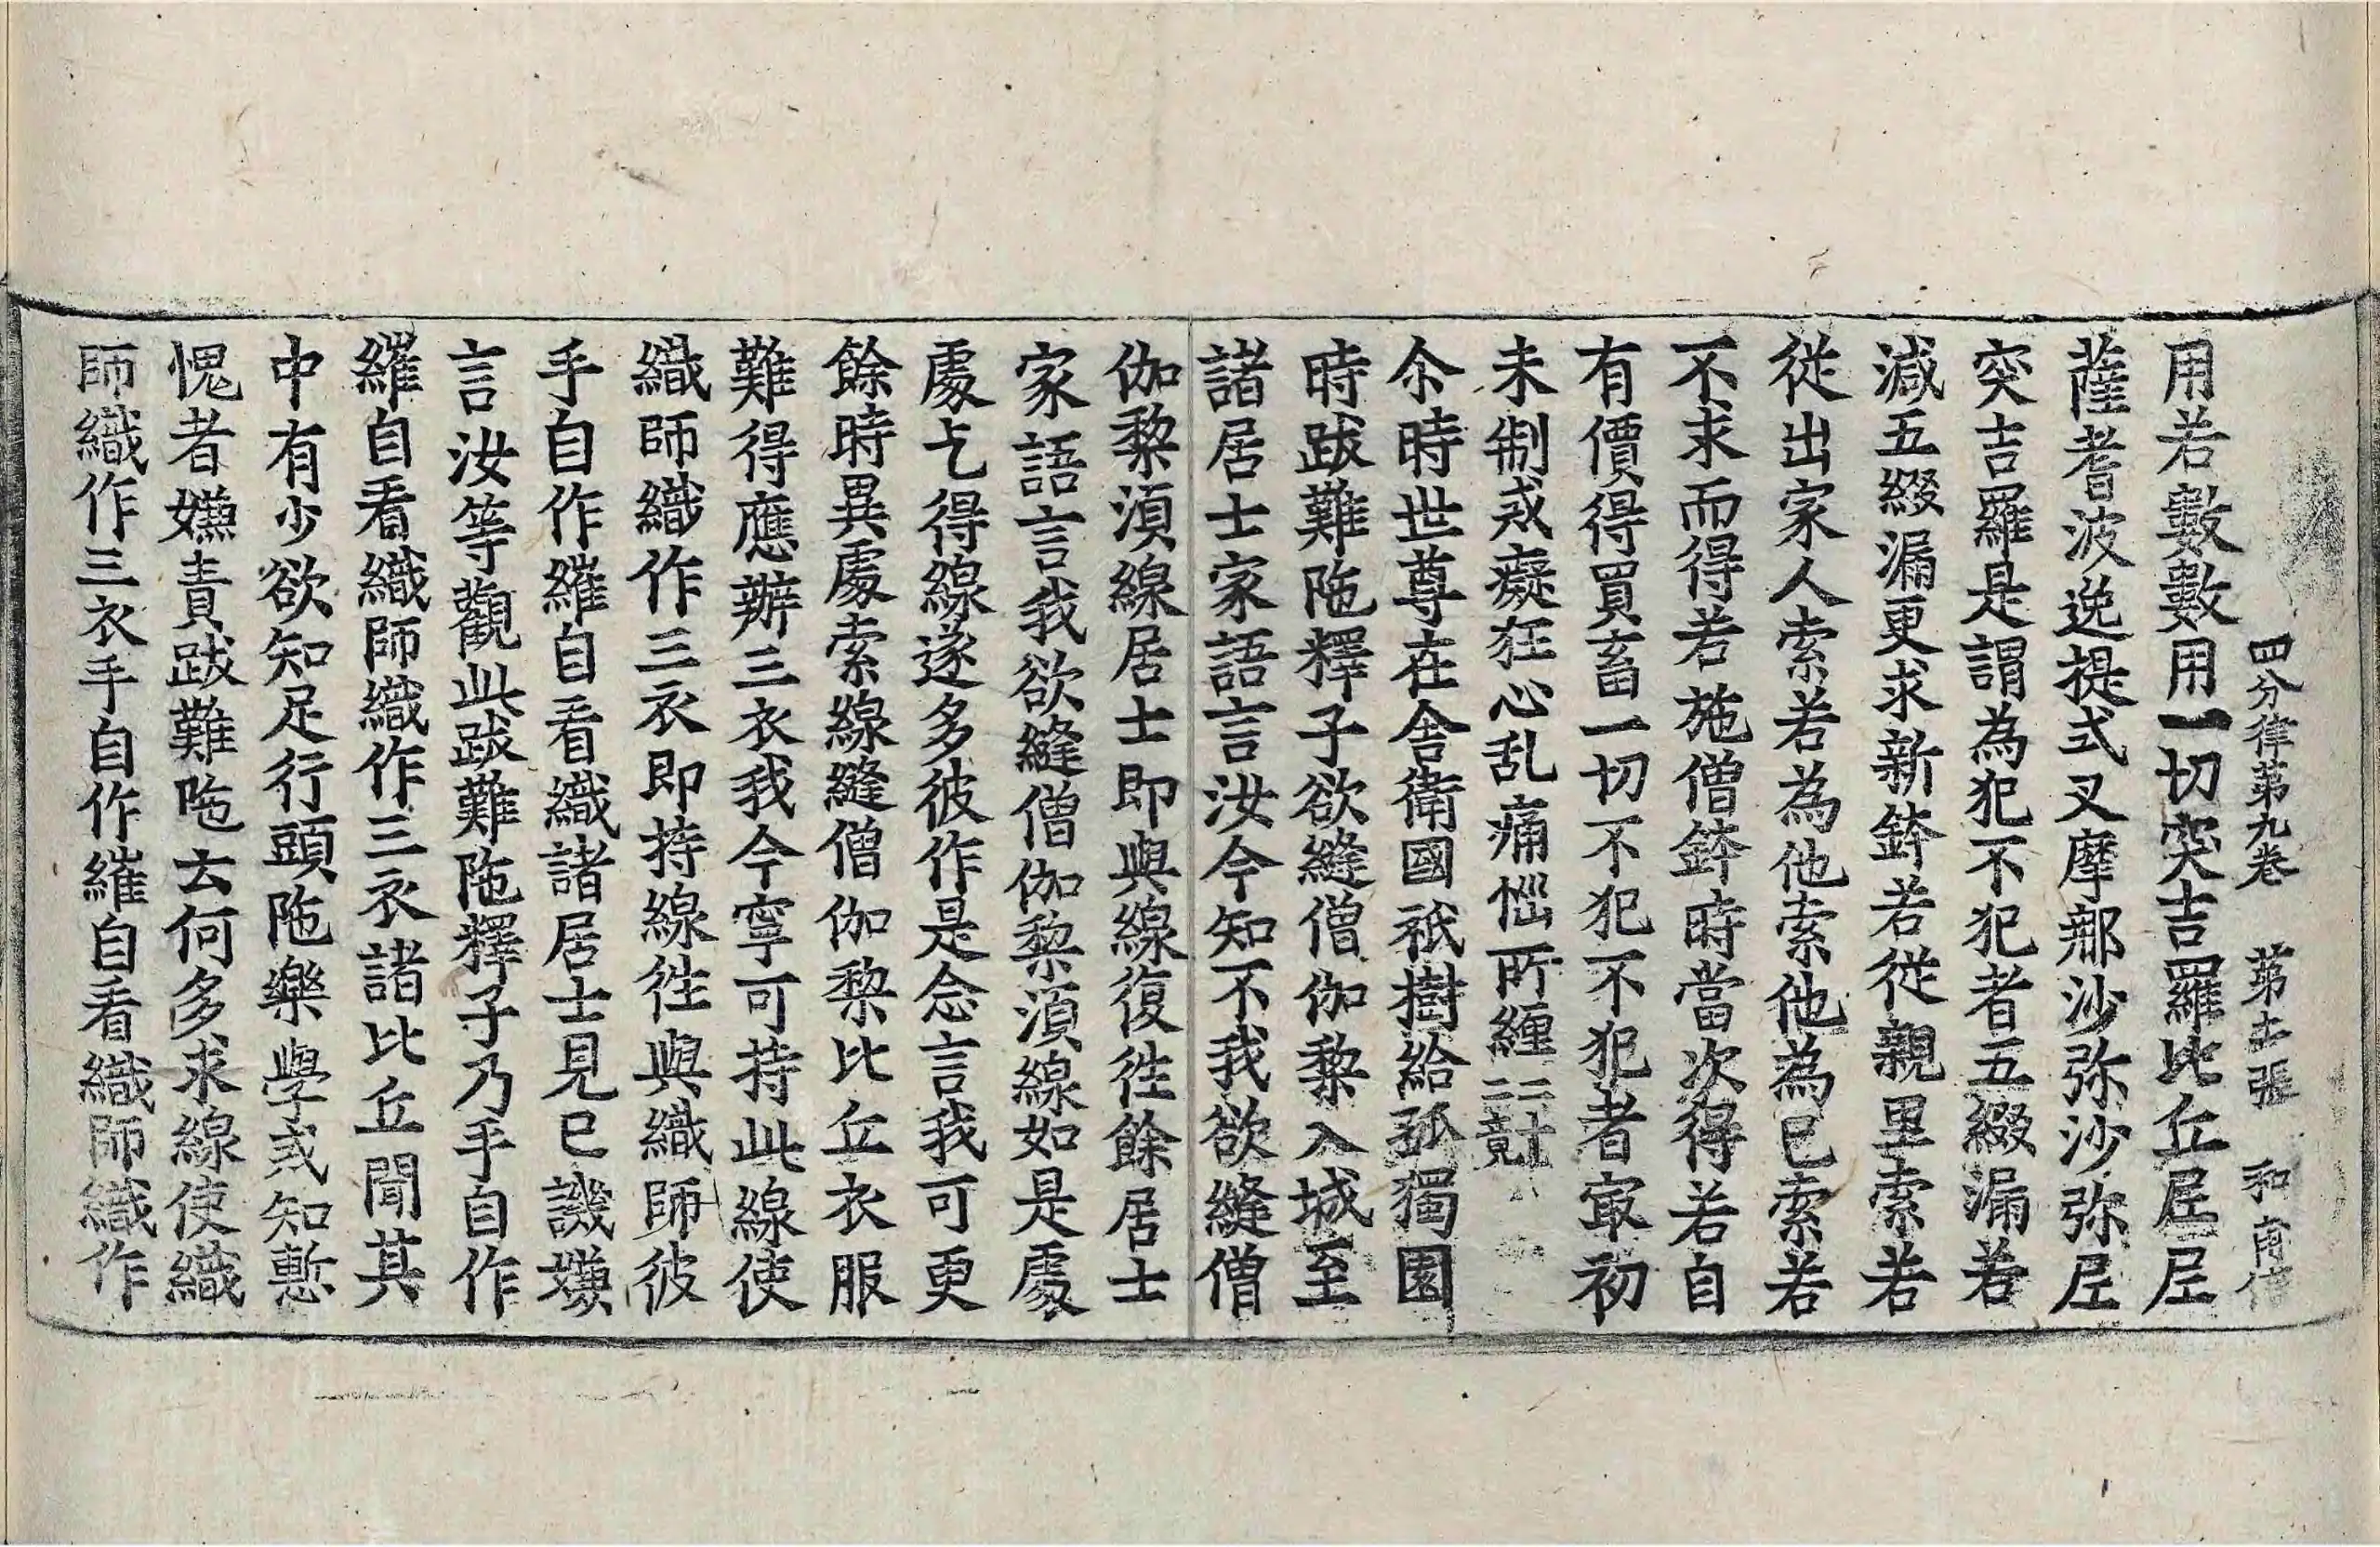 四分律第九卷 第十一張 和
用若數數用一切突吉羅比丘尼尼
薩耆波逸提式叉摩那沙弥沙弥尼
突吉羅是謂為犯不犯者五綴漏若
減五綴漏更求新鉢若從親里索若
從出家人索若為他索他為己索若
不求而得若施僧鉢時當次得若自
有價得買畜一切不犯不犯者㝡初
未制戒癡狂心乱痛惱所纏二十二竟
尒時世尊在舍衛國祇樹給孤獨園
時跋難陁釋子欲縫僧伽黎入城至
諸居士家語言汝今知不我欲縫僧
伽黎須線居士即與線復徃餘居士
家語言我欲縫僧伽黎須線如是處
處乞得線遂多彼作是念言我可更
餘時異處索線縫僧伽黎比丘衣服
難得應辦三衣我今寧可持此線使
織師織作三衣即持線徃與織師彼
手自作繀自看織諸居士見已譏嫌
言汝等觀此跋難陁釋子乃手自作
繀自看織師織作三衣諸比丘聞其
中有少欲知足行頭陁樂學戒知慙
愧者嫌責跋難陁云何多求線使織
師織作三衣手自作繀自看織師織作